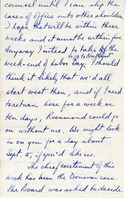 counsel until I can slip the
cares of office onto other shoulders.
I hope that will be within two
weeks and it must be within five.
Anyway I intend to take off the
week-end of Labor Day. I should
think it likely that we'd all
start west then, and if I need
to return here for a week or
ten days, Rosamond could go
on without me. We might look
in on you for a day about
Sept. 5, if you'd like us.
The chief excitement of this
week has been the Donovan case.
The Board was asked to decide